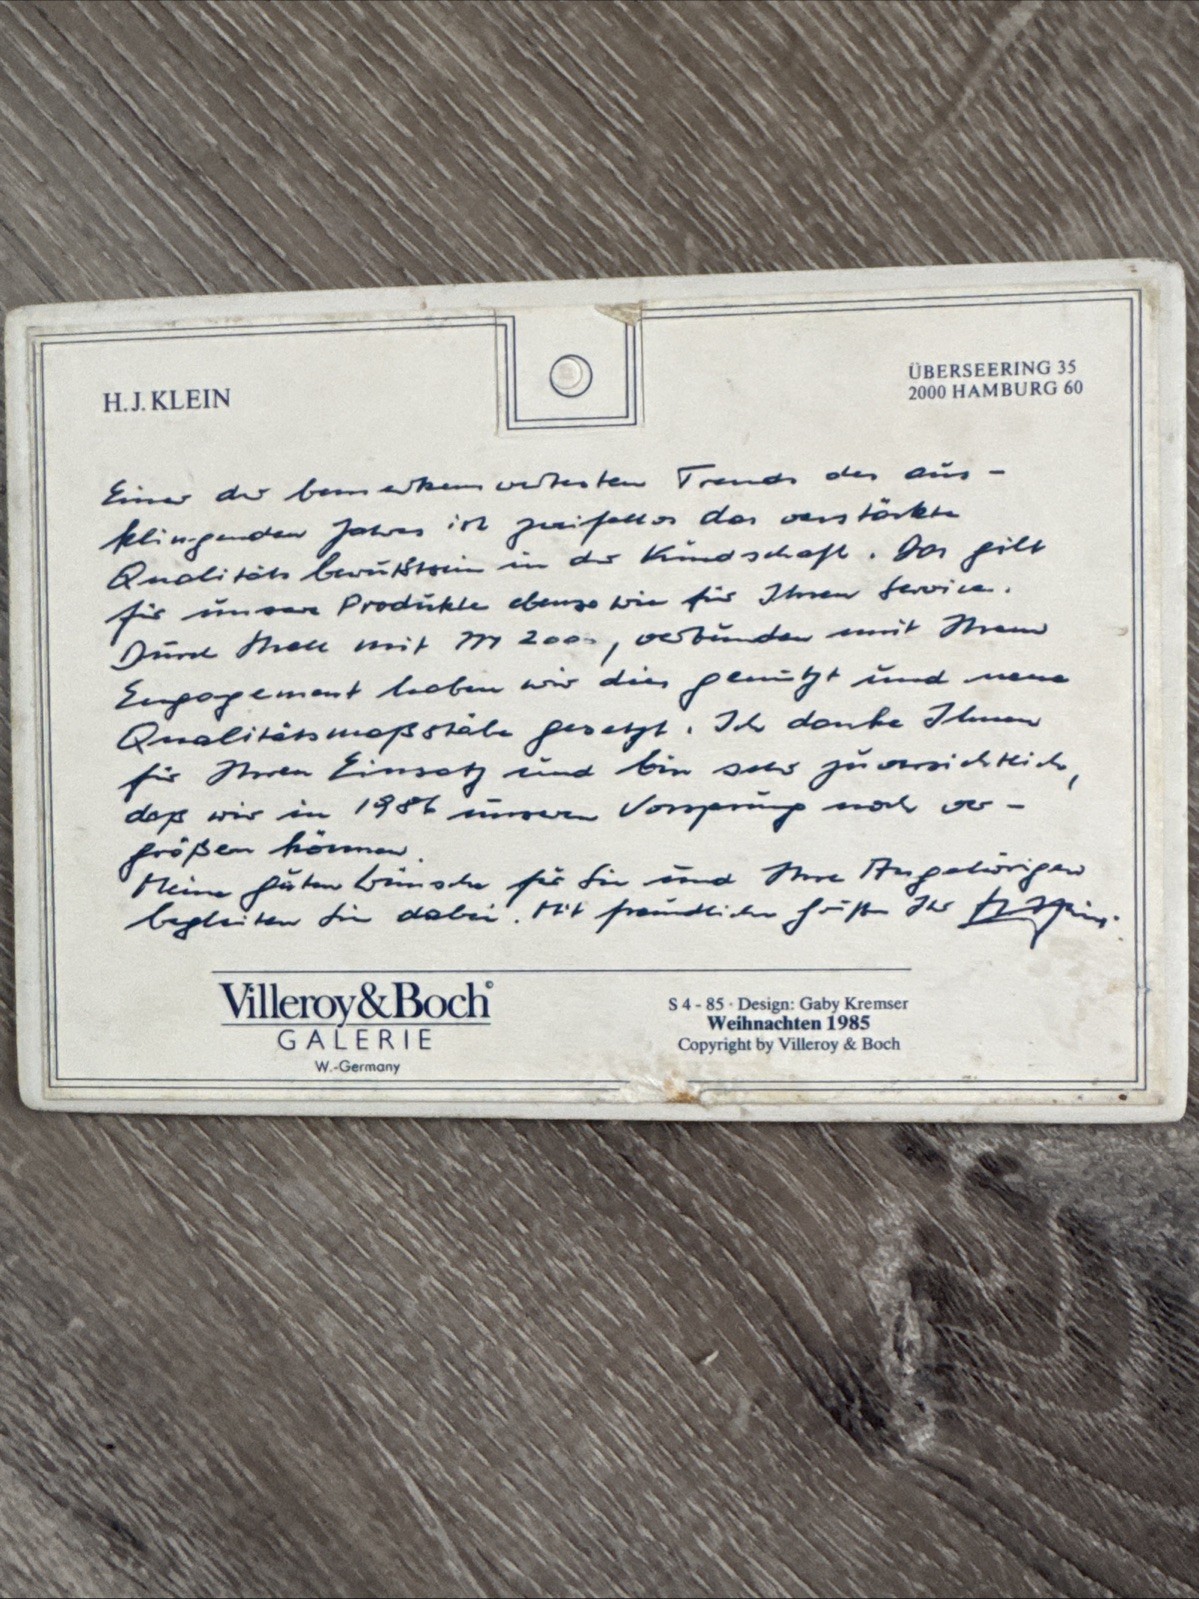 H.J. KLEIN
ÜBERSEERING 35
2000 HAMBURG 60
Einer der bemerkenswertesten Trends des aus-
klingenden Jahres ist zweifellos das verstärkte
Qualitätsbewußtsein in der Kundschaft. Das gilt
für unsere Produkte ebenso wie für Ihren Service.
Durch Shell mit M 2000, verbunden mit Ihrem
Engagement haben wir dies genützt und neue
Qualitätsmaßstäbe gesetzt. Ich danke Ihnen
für Ihren Einsatz und bin sehr zuversichtlich,
daß wir in 1986 unseren Vorsprung noch ver-
größern können.
Meine guten Wünsche für Sie und Ihre Angehörigen
begleiten Sie dabei. Mit freundlichen Grüßen Ihr
Villeroy&Boch©
GALERIE
W.-Germany
S 4 - 85 · Design: Gaby Kremser
Weihnachten 1985
Copyright by Villeroy & Boch